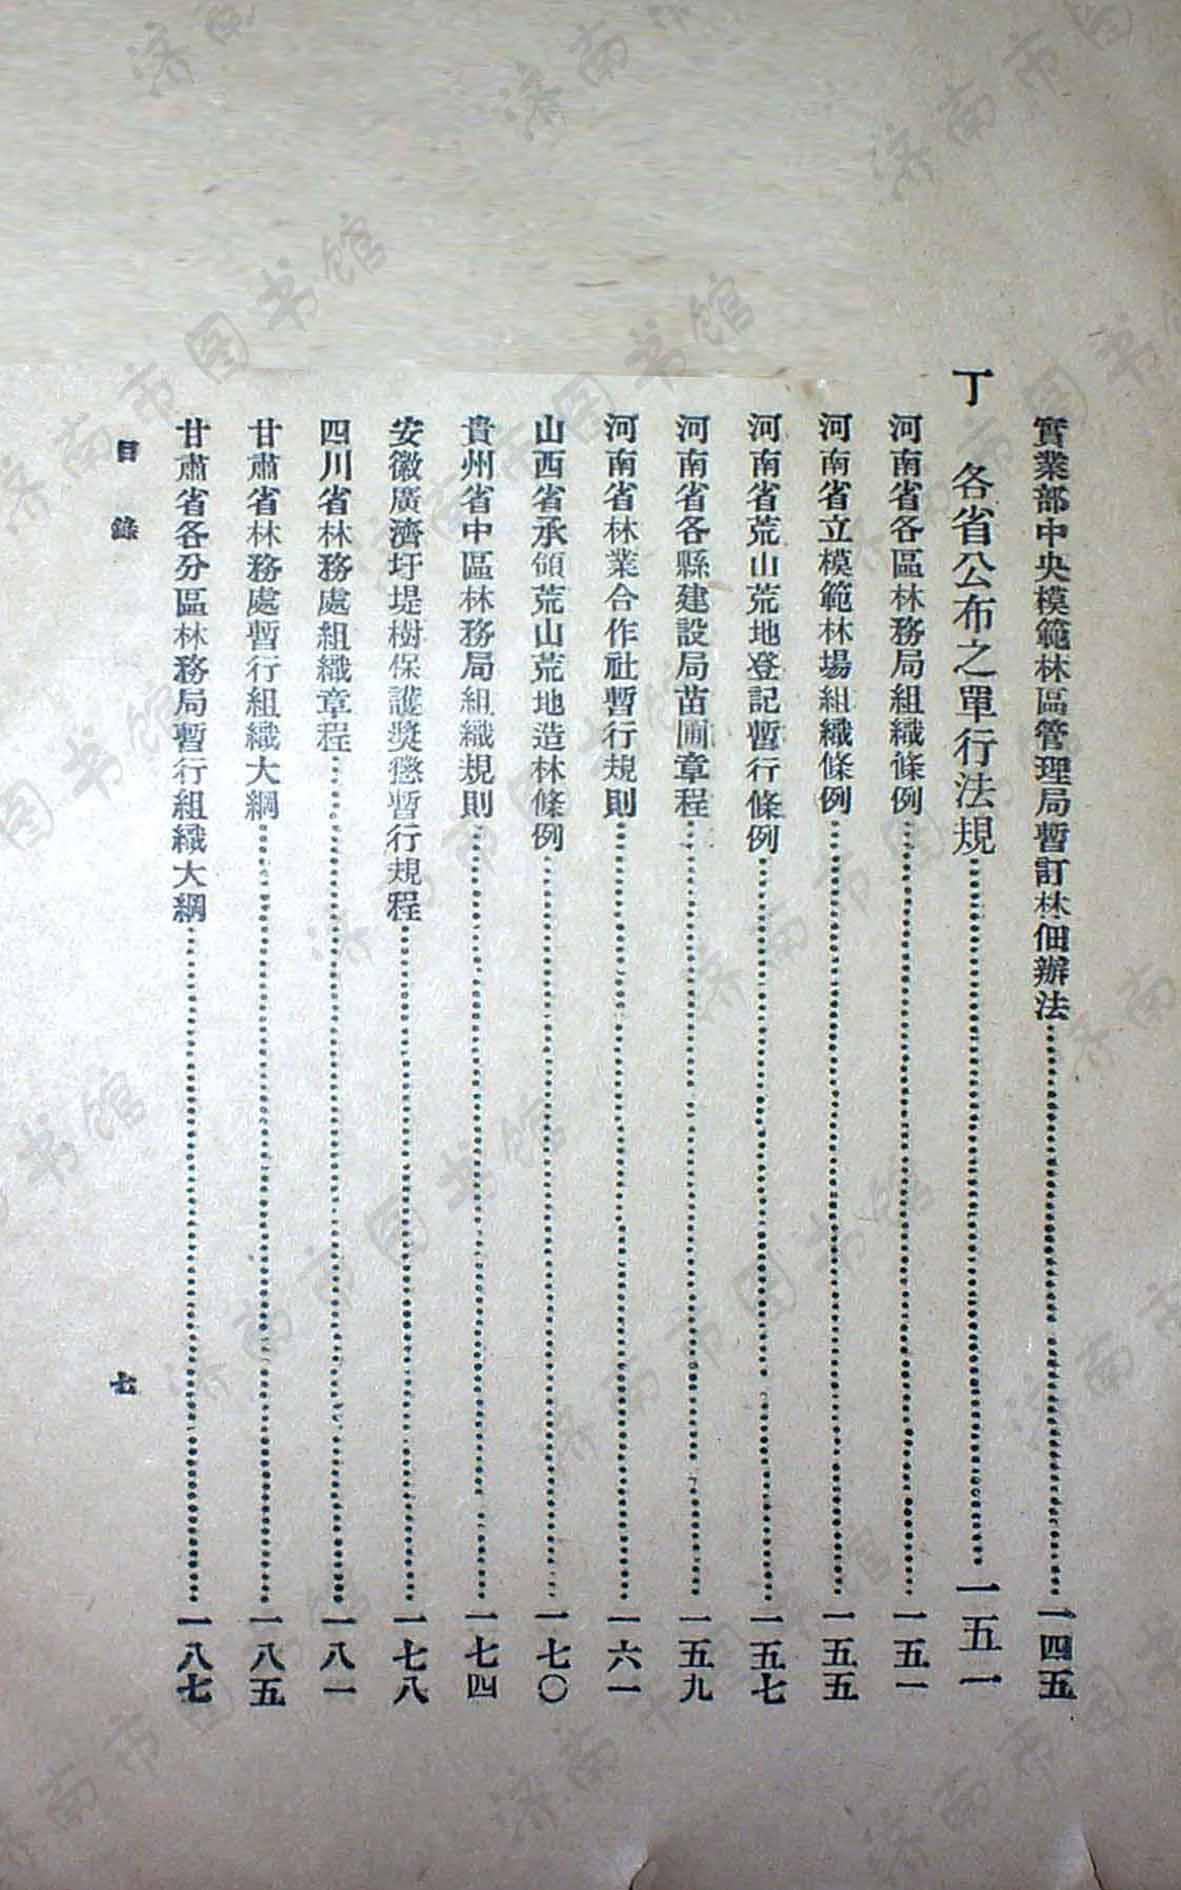 實業部中央模範林區管理局暫訂林佃辦法……一四五
丁 各省公布之單行法規……一五一
河南省各區林務局組織條例……一五一
河南省立模範林場組織條例……一五五
河南省荒山荒地登記暫行條例……一五七
河南省各縣建設局苗圃章程……一五九
河南省林業合作社暫行規則……一六一
山西省承領荒山荒地造林條例……一七〇
貴州省中區林務局組織規則……一七四
安徽廣濟圩堤樹保護獎懲暫行規程……一七八
四川省林務處組織章程……一八一
甘肅省林務處暫行組織大綱……一八五
甘肅省各分區林務局暫行組織大綱……一八七
目錄 七
济南市图书馆